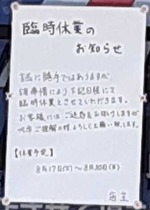 臨時休業の
お知らせ
誠に勝手ではありますが
諸事情により下記日程にて
臨時休業とさせていただきます。
お客様にはご迷惑をお掛けしますが
何卒ご理解の程よろしくお願い致します。
【休業予定】
8月17日(火)〜8月20日(金)
店主